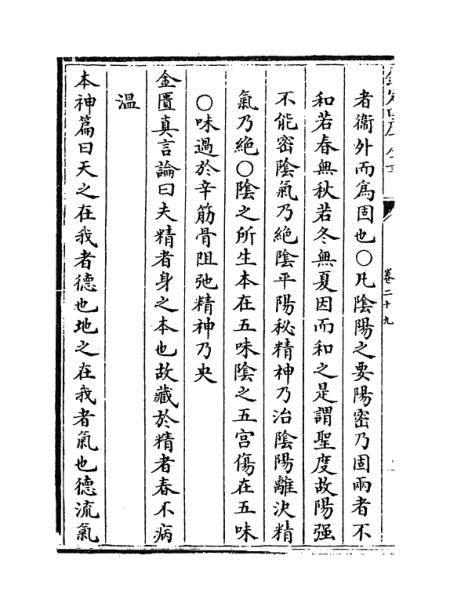 者衞外而為固也○凡陰陽之要陽密乃固兩者不
和若春無秋若冬無夏因而和之是謂聖度故陽强
不能密陰氣乃絶陰平陽秘精神乃治陰陽離決精
氣乃絶○陰之所生本在五味陰之五宫傷在五味
○味過於辛筋骨阻弛精神乃央
金匱真言論曰夫精者身之本也故藏於精者春不病
溫
本神篇曰天之在我者德也地之在我者氣也德流氣
卷二十九